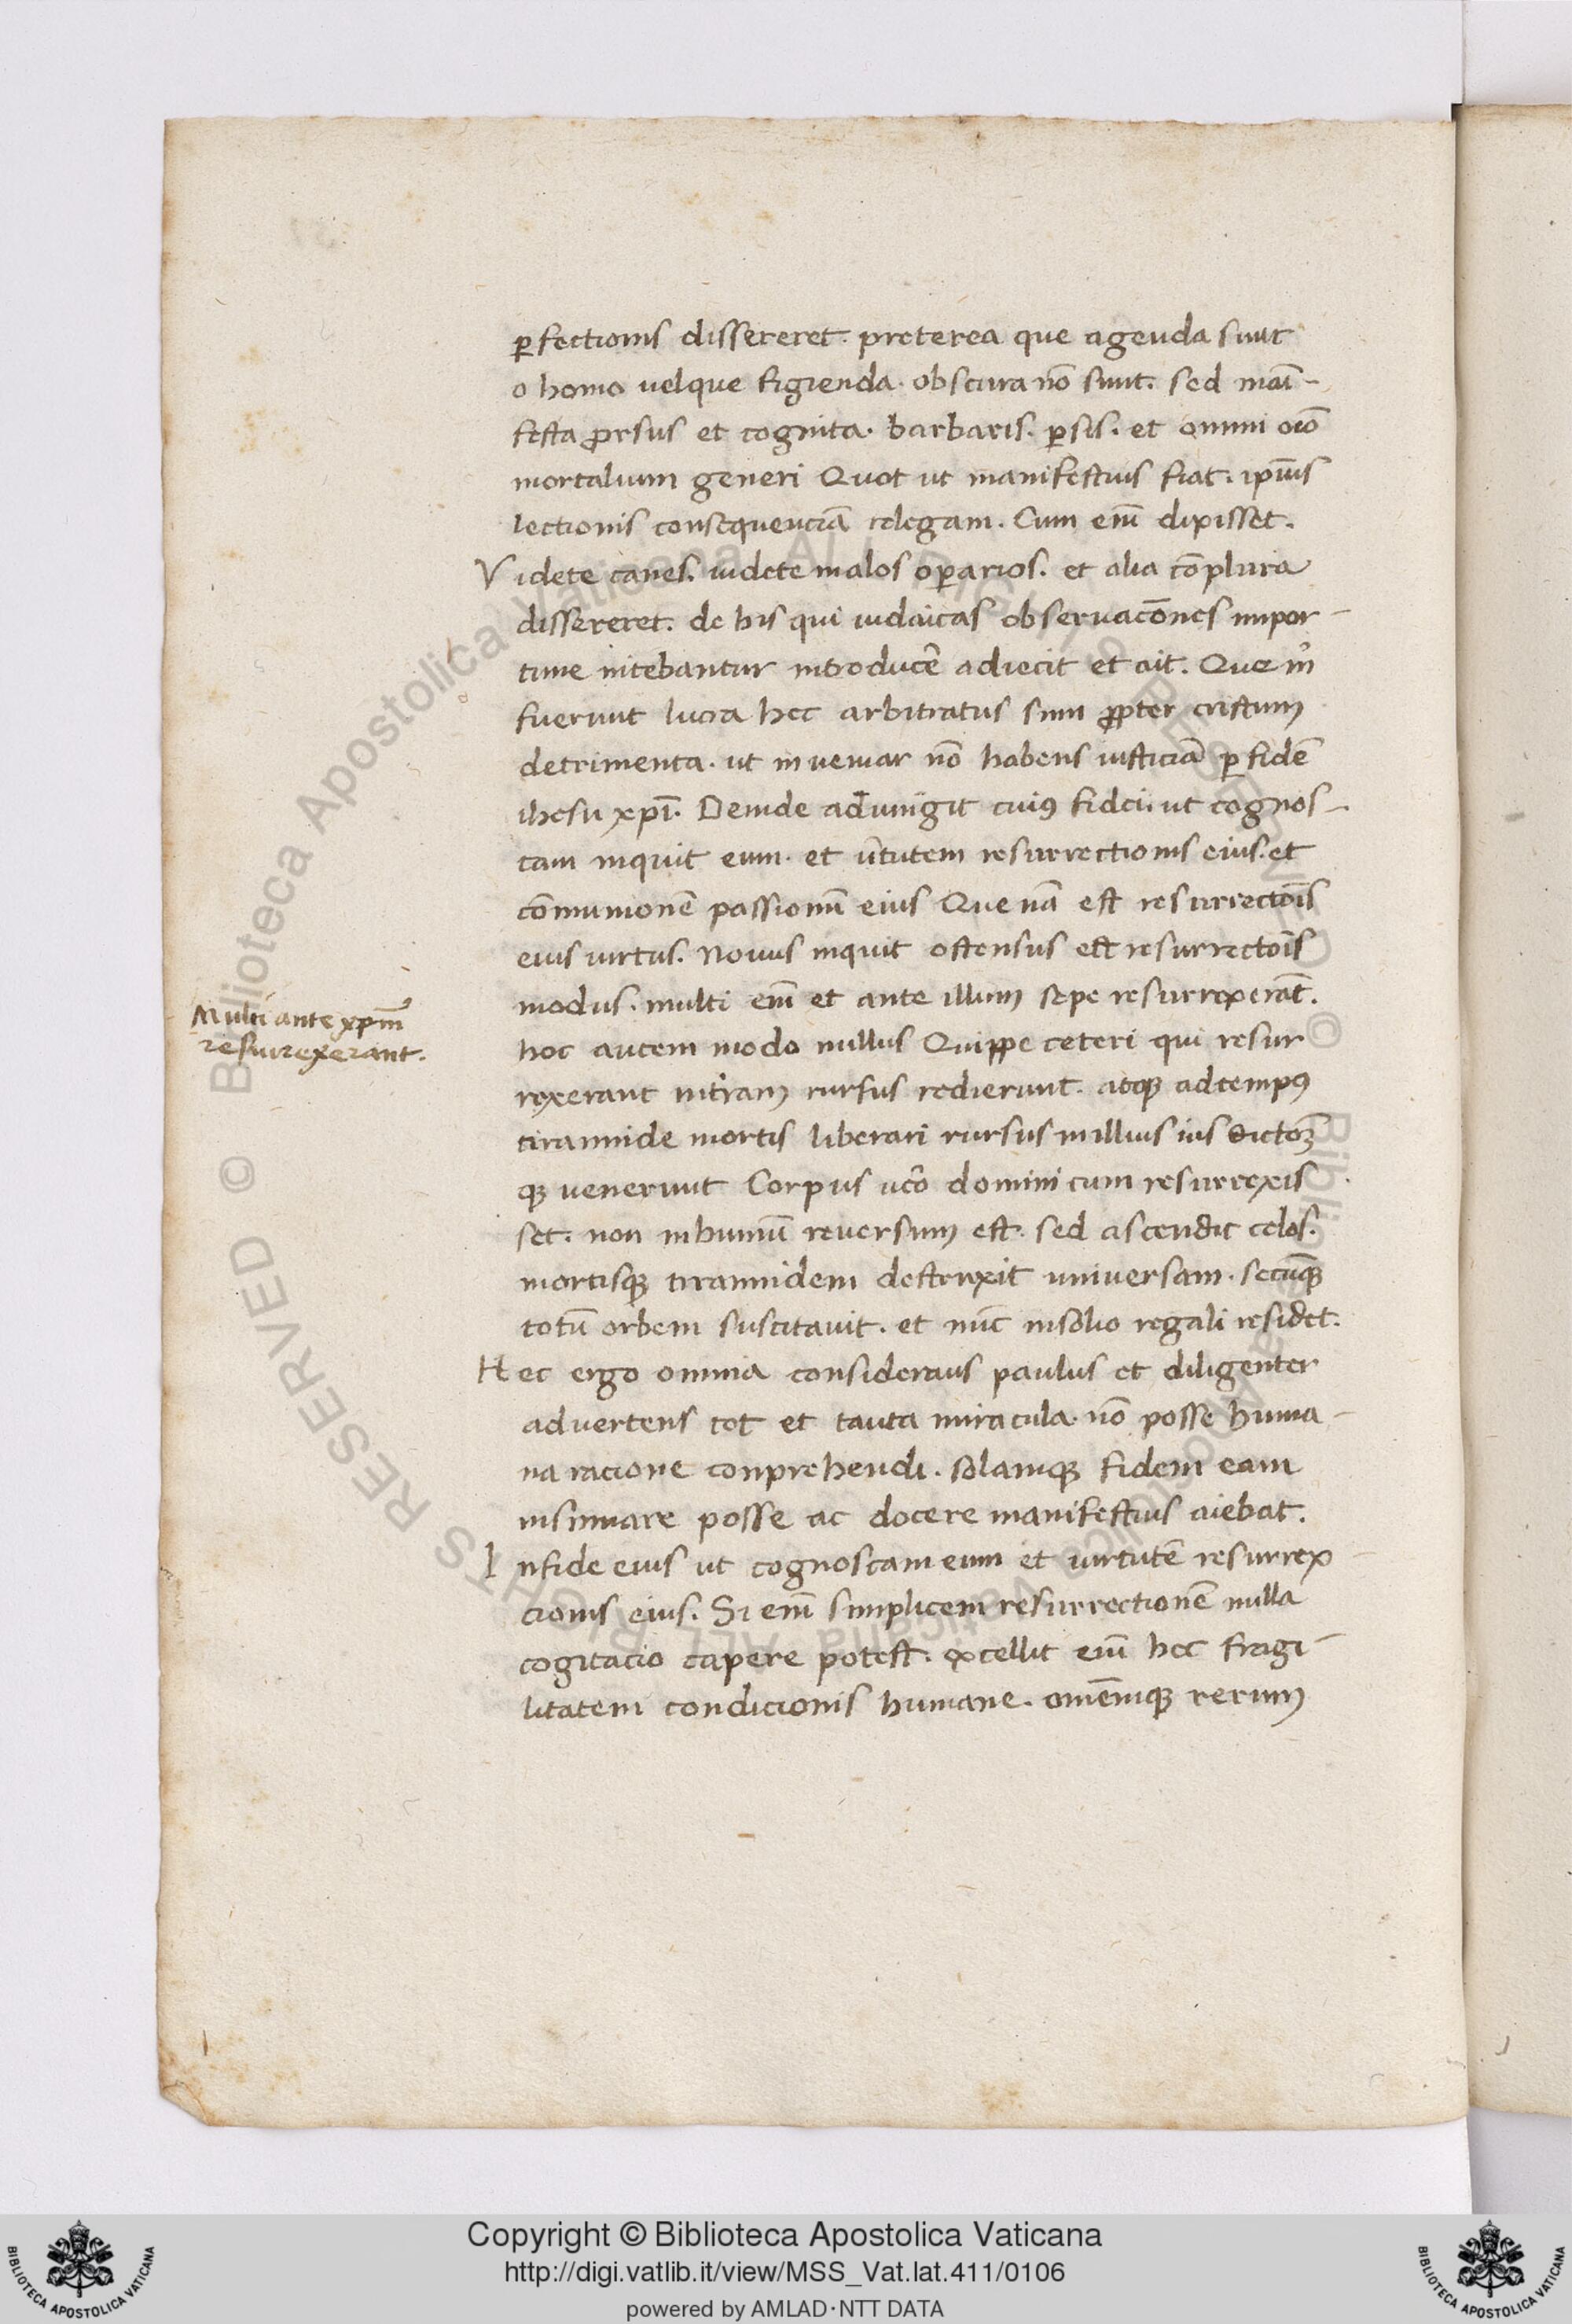 ꝑfectionis dissereret. preterea que agenda sunt
o homo uelque figienda. obscura nō sunt. sed maī-
festa ꝓrsus et cognita. barbaris. ꝑsis. et omni oīo
mortalium generi Quot ut manifestius fiat. ip̄ius
lectionis consequenciā relegam. Cum enī dixisset.
Videte canes. uidete malos oꝑarios. et alia cōplura
dissereret. de his qui iudaicas obseruacōnes impor-
tune nitebantur introducē adiecit et ait. Que m̄
fuerunt lucra hec arbitratus sum ꝓpter cristum
detrimenta. ut inueniar nō habens iusticiā ꝑ fidē
ihesu xp̄i. Deinde adiungit cuiꝰ fidei. ut cognos-
cam inquit eum. et ūtutem resurrectionis eius. et
cōmunionē passionū eius Que nā est resurrectōis
eius uirtus. Nouus inquit ostensus est resurrectōis
modus. multi enī et ante illum sepe resurrexerāt.
hoc autem modo nullus Quippe ceteri qui resur
rexerant in t̄ram rursus redierunt. atqꝫ ad tempꝰ
tirannide mortis liberari rursus in illius ius dictōꝫ
qꝫ venerunt Corpus ūo domini cum resurrexis
set. non in humū reversum est. sed ascendit celos.
mortisqꝫ tirannidem destruxit universam. secūqꝫ
totū orbem suscitauit. et nūc in solio regali residet.
Hec ergo omnia considerans paulus et diligenter
advertens tot et tanta miracula. nō posse huma-
na racione conprehendi. solamqꝫ fidem eam
insinuare posse ac docere manifestius aiebat.
In fide eius ut cognoscam eum et uirtutē resurrex
cionis eius. Si enī simplicem resurrectionē nulla
cogitacio capere potest. excellit enī hec fragi-
litatem condicionis humane. omēmqꝫ rerum
Multi ante xp̄m
resurrexerant.
Copyright © Biblioteca Apostolica Vaticana
http://digi.vatlib.it/view/MSS_Vat.lat.411/0106
powered by AMLAD·NTT DATA